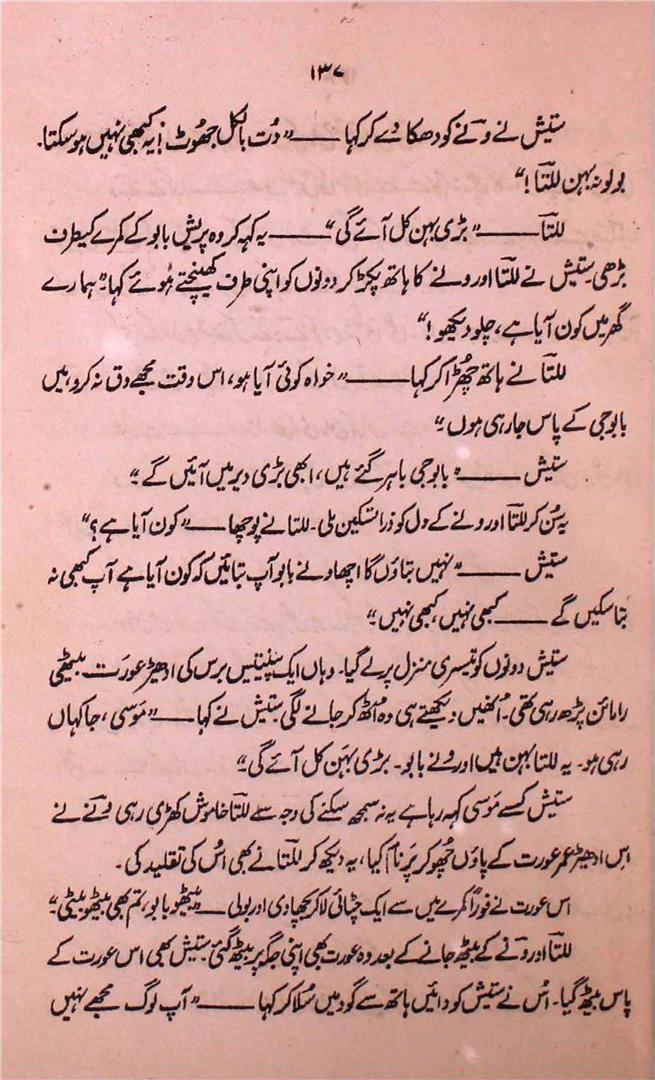 ۱۳۷
ستیش نے ونے کو دھکا دے کر کہا ——— ”دُت بالکل جھُوٹ! یہ کبھی نہیں ہو سکتا۔
بولو نہ بہن للتا!“
للتا ——— ”بڑی بہن کل آئے گی“ ——— یہ کہہ کر وہ پریش بابو کے کمرے کیطرف
بڑھی۔ ستیش نے للتا اور ونے کا ہاتھ پکڑ کر دونوں کو اپنی طرف کھینچتے ہُوئے کہا۔ ”ہمارے
گھر میں کون آیا ہے، چلو دیکھو!“
للتا نے ہاتھ چھُڑا کر کہا ——— ”خواہ کوئی آیا ہو، اس وقت مجھے دق نہ کرو، میں
بابو جی کے پاس جا رہی ہوں۔“
ستیش ——— ”بابو جی باہر گئے ہیں، ابھی بڑی دیر میں آئیں گے۔“
یہ سُن کر للتا اور ونے کے دل کو ذرا تسکین ملی۔ للتا نے پوچھا ——— ”کون آیا ہے؟“
ستیش ——— ”نہیں بتاؤں گا اچھا ونے بابو آپ بتائیں کہ کون آیا ہے آپ کبھی نہ
بتا سکیں گے ——— کبھی نہیں، کبھی نہیں۔“
ستیش دونوں کو تیسری منزل پر لے گیا۔ وہاں ایک سینتیس برس کی ادھیڑ عورت بیٹھی
رامائن پڑھ رہی تھی۔ اُنھیں دیکھتے ہی وہ اُٹھ کر جانے لگی۔ ستیش نے کہا ——— ”مَوسی، جا کہاں
رہی ہو۔ یہ للتا بہن ہیں اور ونے بابو۔ بڑی بہَن کل آئے گی۔“
ستیش کسے مَوسی کہہ رہا ہے یہ نہ سمجھ سکنے کی وجہ سے للتا خاموش کھڑی رہی ونے نے
اِس ادھیڑ عمر عورت کے پاؤں چھُو کر پَرنام کیا، یہ دیکھ کر للتا نے بھی اُس کی تقلید کی۔
اس عورت نے فوراً کمرے میں سے ایک چٹائی لا کر بچھا دی اور بولی ——— ”بیٹھو بابو، تم بھی بیٹھو بیٹی۔“
للتا اور ونے کے بیٹھ جانے کے بعد وہ عورت بھی اپنی جگہ پر بیٹھ گئی۔ ستیش بھی اس عورت کے
پاس بیٹھ گیا۔ اُس نے ستیش کو دائیں ہاتھ سے گود میں سُلا کر کہا ——— ”آپ لوگ مجھے نہیں